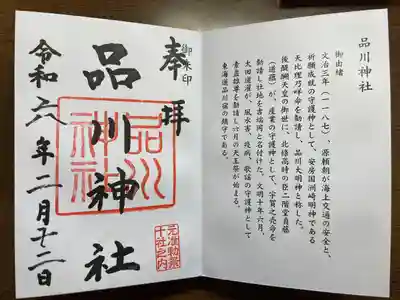 奉拝
御朱印
品川神社
品川神社
元准勅祭
十社之内
令和六年二月十二日
品川神社
御由緒
文治三年(一一八七)、源頼朝が海上交通の安全と、
祈願成就の守護神として、安房国洲崎明神である
天比理乃咩命を勧請し、品川大明神と称した。
後醍醐天皇の御世に、北條高時の臣二階堂貞藤
(道蘊)が、産業の守護神として、宇賀之売命を
勧請し社地を吉端岡と名付けた。文明十年六月、
太田道灌が、風水害、疫病、歌謡の守護神として
素盞雄尊を勧請し六月の天王祭が始まる。
東海道品川宿の鎮守である。